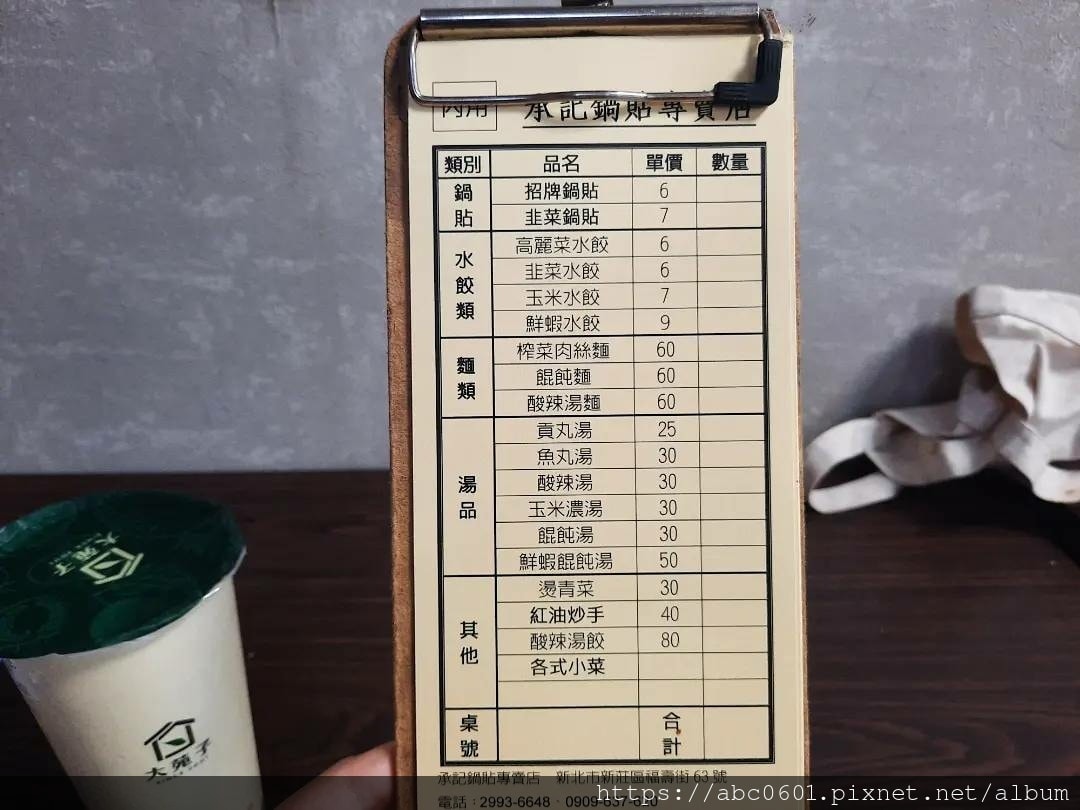 內用 承記鍋貼專賣店
類別 品名 單價 數量
鍋貼 招牌鍋貼 6
韭菜鍋貼 7
水餃類 高麗菜水餃 6
韭菜水餃 6
玉米水餃 7
鮮蝦水餃 9
麵類 榨菜肉絲麵 60
餛飩麵 60
酸辣湯麵 60
湯品 貢丸湯 25
魚丸湯 30
酸辣湯 30
玉米濃湯 30
餛飩湯 30
鮮蝦餛飩湯 50
其他 燙青菜 30
紅油炒手 40
酸辣湯餃 80
各式小菜
桌號 合計
承記鍋貼專賣店 新北市新莊區福壽街 63 號
電話：2993-6648 · 0909-637-610
大苑子
大苑子
https://abc0601.pixnet.net/album